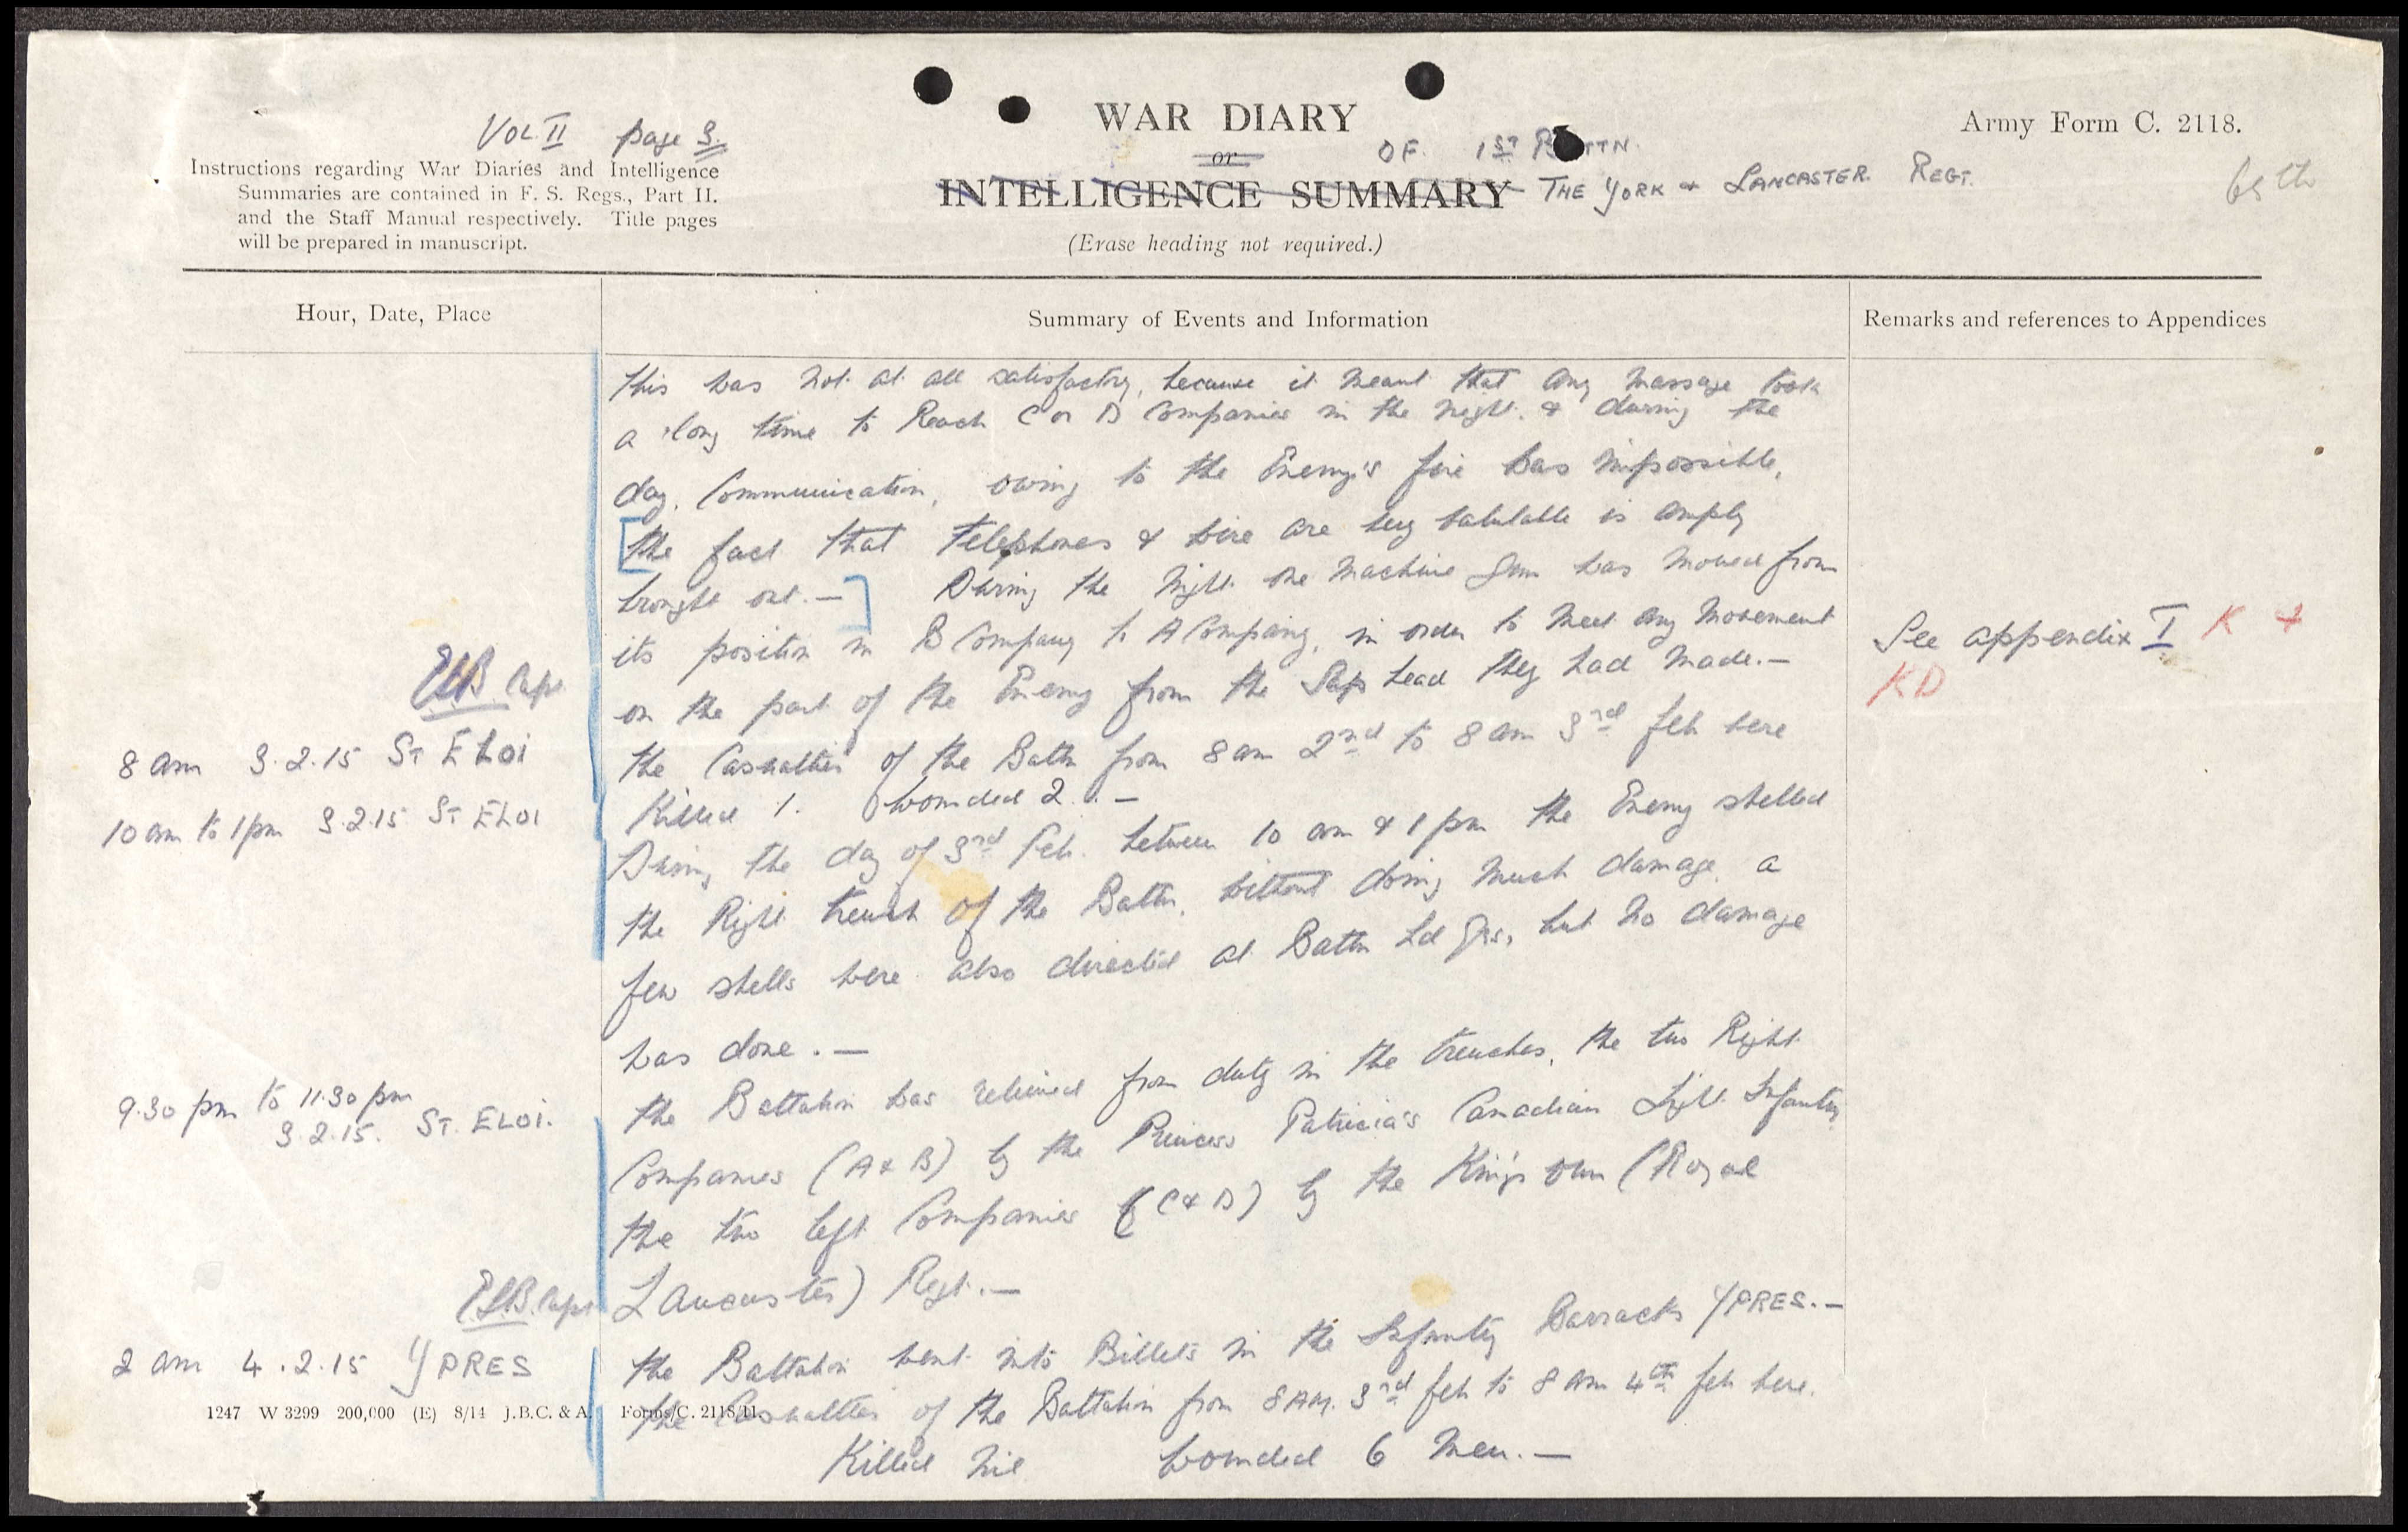 VOL II page 3.
Instructions regarding War Diaries and Intelligence
Summaries are contained in F. S. Regs., Part II.
and the Staff Manual respectively. Title pages
will be prepared in manuscript.
WAR DIARY
or
INTELLIGENCE SUMMARY
(Erase heading not required.)
OF 1ST BATTN.
THE YORK & LANCASTER REGT.
Army Form C. 2118.
65th
Hour, Date, Place
Summary of Events and Information
Remarks and references to Appendices
This was not at all satisfactory, because it meant that any message took
a long time to Reach C or D Companies in the night, & during the
day, Communication, owing to the Enemy's fire was impossible,
[the fact that Telephones & wire are very valuable is amply
brought out. —] During the night one machine gun was moved from
its position in B Company to A Company, in order to meet any movement
on the part of the Enemy from the Sap head they had made. —
See appendix I K &
KD
Capt
8 am 3.2.15 ST ELOI
the Casualties of the Battn from 8 am 2nd to 8 am 3rd feb were
Killed 1. Wounded 2. —
10 am to 1 pm 3.2.15 ST ELOI
During the day of 3rd Feb. between 10 am & 1 pm the Enemy shelled
the Right trench of the Battn, without doing much damage, a
few shells were also directed at Battn Hd Qrs, but no damage
was done. —
9.30 pm to 11.30 pm
3.2.15. ST. ELOI.
the Battalion was relieved from duty in the trenches, the two Right
Companies (A & B) by the Princess Patricia's Canadian Light Infantry
the two left Companies (C & D) by the King's Own (Royal
Lancaster) Regt. —
Capt
2 am 4.2.15 YPRES
the Battalion went into Billets in the Infantry Barracks YPRES. —
the Casualties of the Battalion from 8 AM. 3rd feb to 8 am 4th feb were.
Killed nil wounded 6 men. —
1247 W 3299 200,000 (E) 8/14 J.B.C. & A. Forms/C. 2118/11.